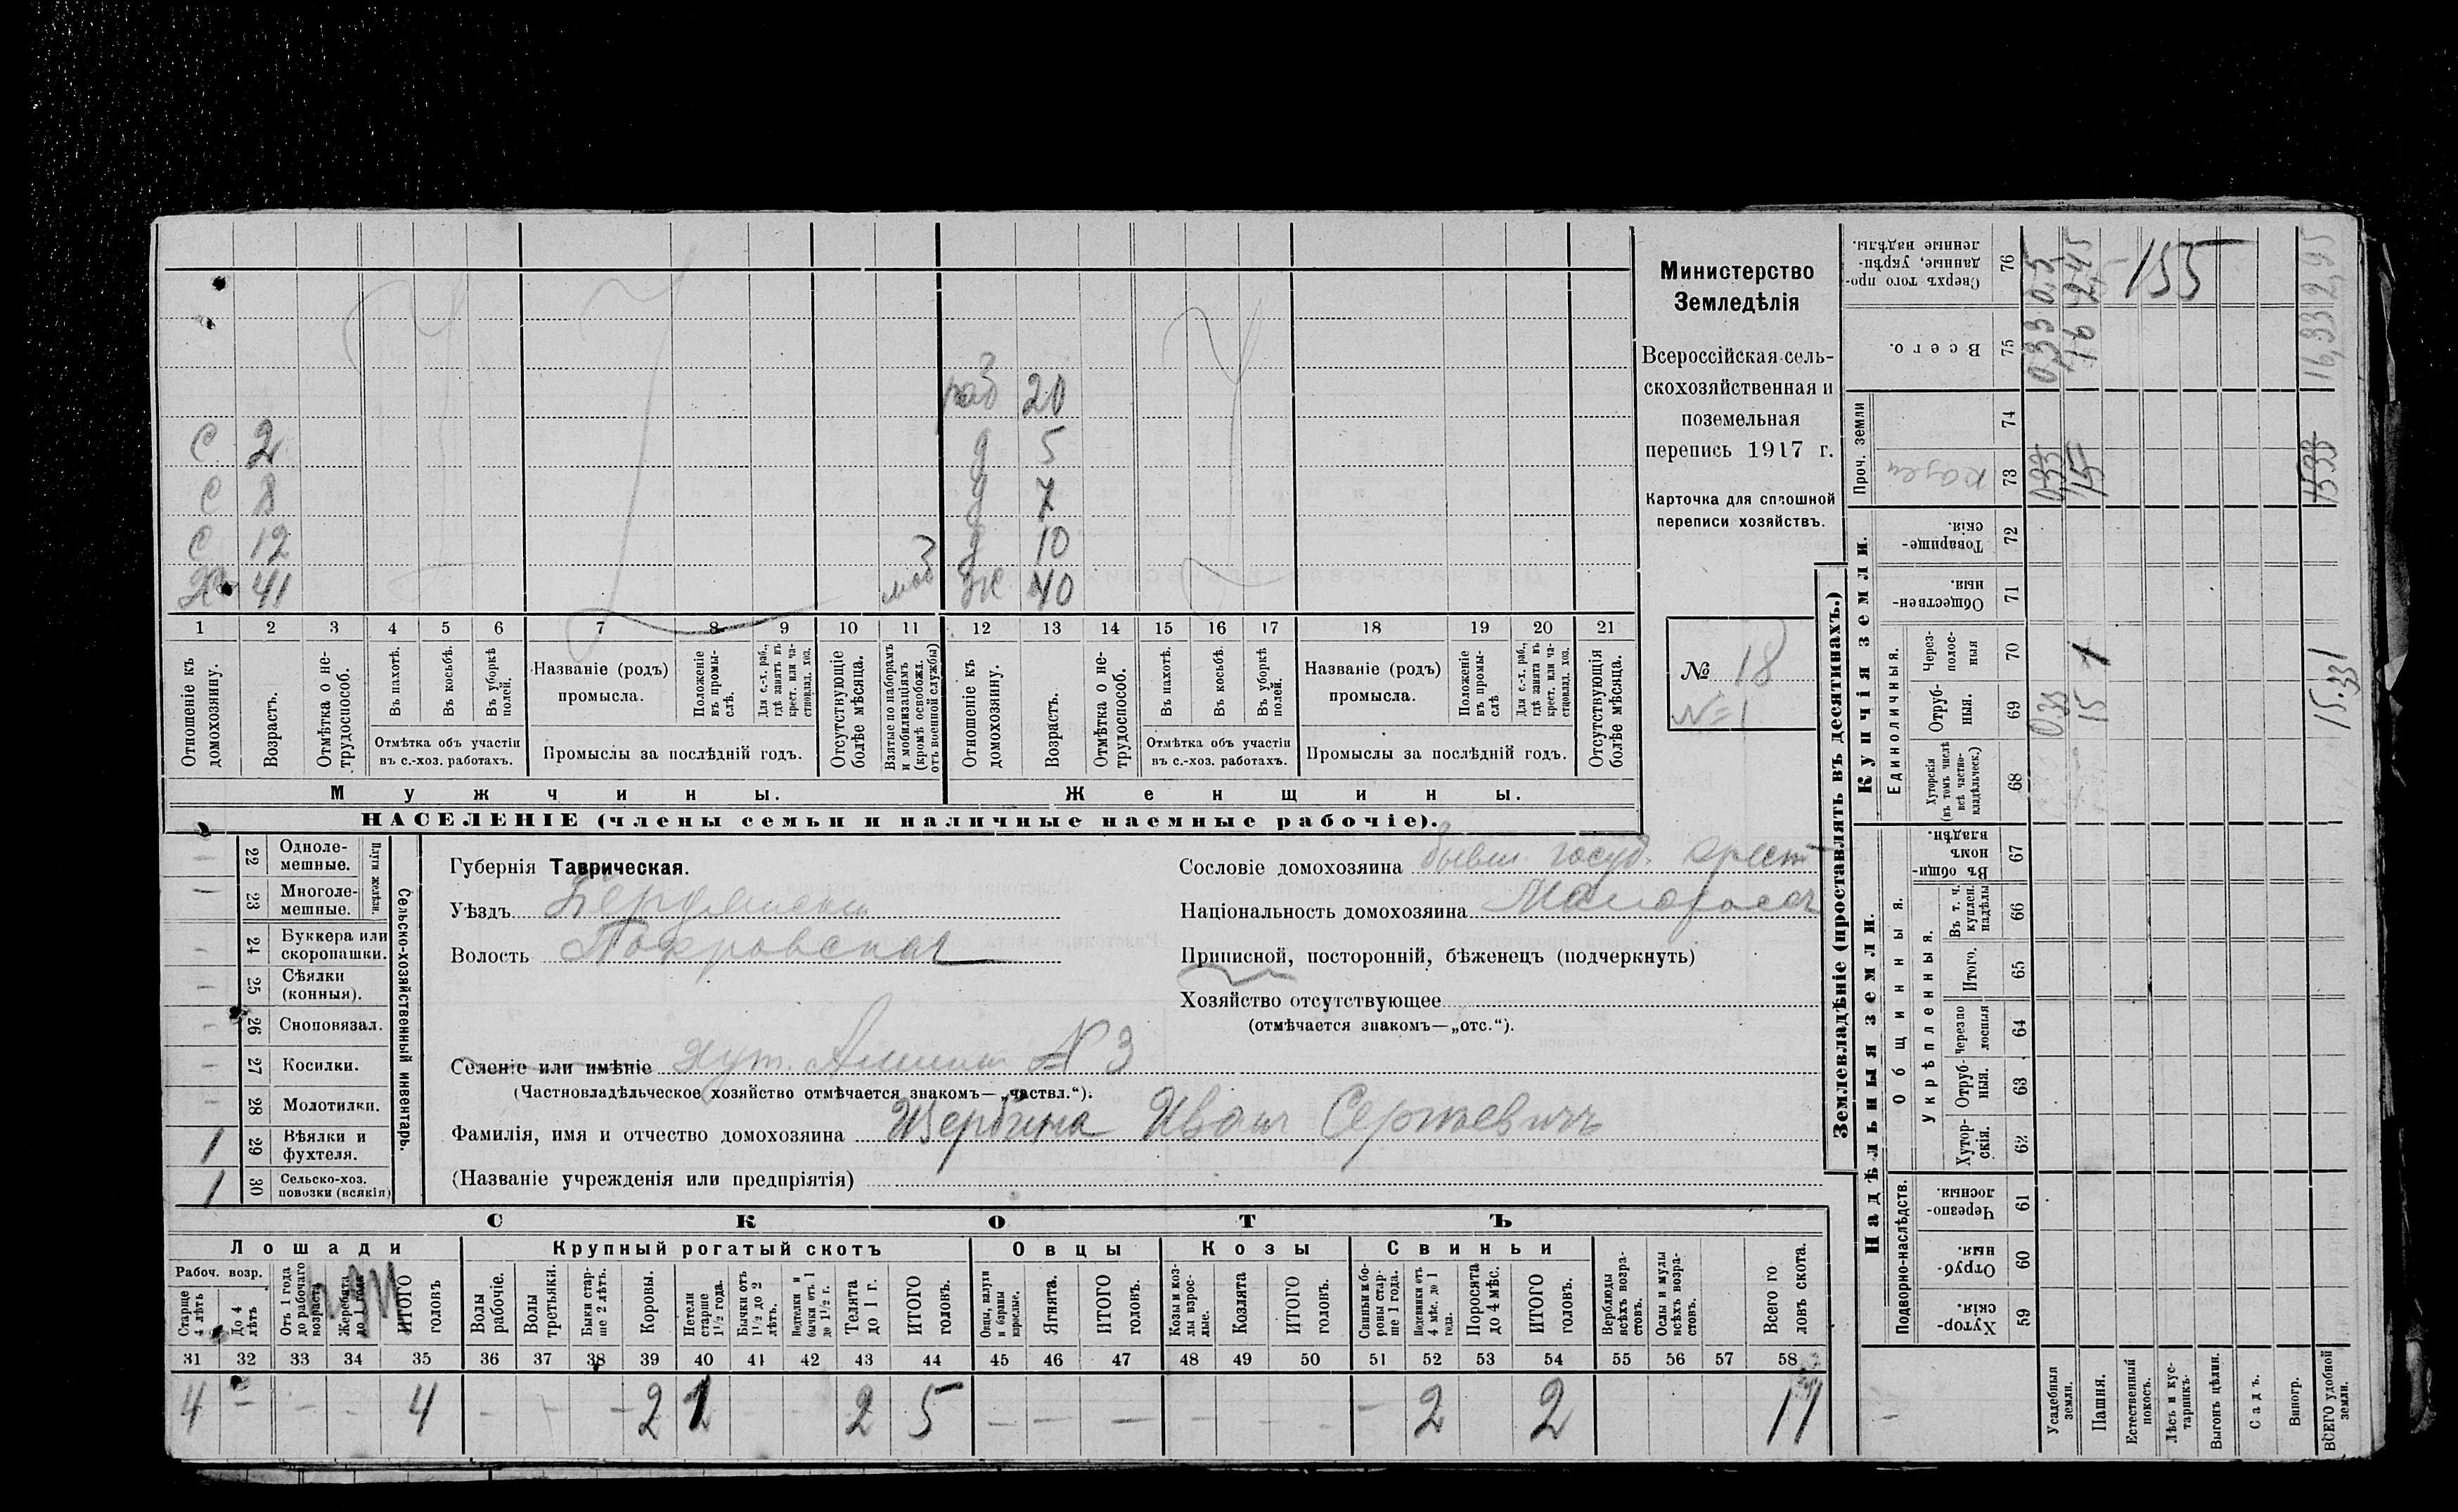 раб 20
С 2 д 5
С 8 д 7
С 12 д 10
Х 41 моб ж 40
1 2 3 4 5 6 7 8 9 10 11 12 13 14 15 16 17 18 19 20 21
Отношеніе къ домохозяину.
Возрастъ.
Отмѣтка о не-трудоспособ.
Въ пахотѣ.
Въ косьбѣ.
Въ уборкѣ полей.
Отмѣтка объ участіи въ с.-хоз. работахъ.
Названіе (родъ) промысла.
Положеніе въ промы-слѣ.
Для с.-х. раб., гдѣ занятъ въ крест. или ча-стновлад. хоз.
Промыслы за послѣдній годъ.
Отсутствующіе болѣе мѣсяца.
Взятые по наборамъ и мобилизаціямъ (кромѣ освобожд. отъ военной службы)
Отношеніе къ домохозяину.
Возрастъ.
Отмѣтка о не-трудоспособ.
Въ пахотѣ.
Въ косьбѣ.
Въ уборкѣ полей.
Отмѣтка объ участіи въ с.-хоз. работахъ.
Названіе (родъ) промысла.
Положеніе въ промы-слѣ.
Для с.-х. раб., гдѣ занятъ въ крест. или ча-стновлад. хоз.
Промыслы за послѣдній годъ.
Отсутствующія болѣе мѣсяца.
Мужчины.
Женщины.
НАСЕЛЕНІЕ (члены семьи и наличные наемные рабочіе).
Министерство
Земледѣлія
Всероссійская сель-
скохозяйственная и
поземельная
перепись 1917 г.
Карточка для сплошной
переписи хозяйствъ.
№ 18
№ 1
22 Одноле-мешные.
23 Многоле-мешные.
Плуги желѣзн.
24 Буккера или скоропашки.
25 Сѣялки (конныя).
26 Сноповязал.
27 Косилки.
28 Молотилки.
1 29 Вѣялки и фухтеля.
1 30 Сельско-хоз. повозки (всякія)
Сельско-хозяйственный инвентарь.
Губернія Таврическая.
Уѣздъ Бердянски
Волость Покровская
Селеніе или имѣніе хут. № 3
(Частновладѣльческое хозяйство отмѣчается знакомъ—„частвл.“).
Фамилія, имя и отчество домохозяина Щербина Иван Сергѣевичъ
(Названіе учрежденія или предпріятія)
Сословіе домохозяина бывш. госуд. крест
Національность домохозяина Малоросъ
Приписной, посторонній, бѣженецъ (подчеркнуть)
Хозяйство отсутствующее
(отмѣчается знакомъ—„отс.“).
СКОТЪ
Лошади
Крупный рогатый скотъ
Овцы
Козы
Свиньи
Рабоч. возр.
Старше 4 лѣтъ
До 4 лѣтъ
Отъ 1 года до рабочаго возраста
Жеребята до 1 года
ИТОГО головъ
Волы рабочіе.
Волы третьяки.
Быки стар-ше 2 лѣтъ.
Коровы.
Нетели старше 1½ года.
Бычки отъ 1½ до 2 лѣтъ.
Подтелки и бычки отъ 1 до 1½ г.
Телята до 1 г.
ИТОГО головъ.
Овцы, валухи и бараны взрослые.
Ягнята.
ИТОГО головъ.
Козы и коз-лы взрос-лые.
Козлята
ИТОГО головъ.
Свиньи и бо-ровы стар-ше 1 года.
Подсвинки отъ 4 мѣс. до 1 года.
Поросята до 4 мѣс.
ИТОГО головъ.
Верблюды всѣхъ возра-стовъ.
Ослы и мулы всѣхъ возра-стовъ.
Всего го ловъ скота.
31 32 33 34 35 36 37 38 39 40 41 42 43 44 45 46 47 48 49 50 51 52 53 54 55 56 57 58
4 – – – 4 – – – 2 1 – – 2 5 – – – – – – – 2 2 11
Землевладѣніе (проставлять въ десятинахъ.)
Надѣльныя земли.
Купчія земли.
Проч. земли
Подворно-наслѣдств.
Общинныя.
Укрѣпленныя.
Единоличныя.
Сверхъ того про-данные, укрѣп-ленные надѣлы. 76
Всего. 75
74
казен 73
Товарище-скія. 72
Обществен-ныя. 71
Через-полос-ныя 70
Отруб-ныя. 69
Хуторскія (въ томъ числѣ всѣ частно-владѣльческ.) 68
Въ общин-номъ владѣн. 67
Въ т. ч. куплен. надѣлы 66
Итого. 65
Черезпо лосныя 64
Отруб-ныя. 63
Хутор-скія. 62
Черезпо-лосныя. 61
Отруб-ныя. 60
Хутор-скія. 59
Усадебныя земли.
Пашня.
Естественный покосъ.
Лѣсъ и кус-тарникъ.
Выгонъ цѣлин.
Садъ.
Виногр.
ВСЕГО удобной земли.
0,33 0,5
16 2,45
155
16,33 2,95
0,33
15
15 33
0,33
15 1
15.33